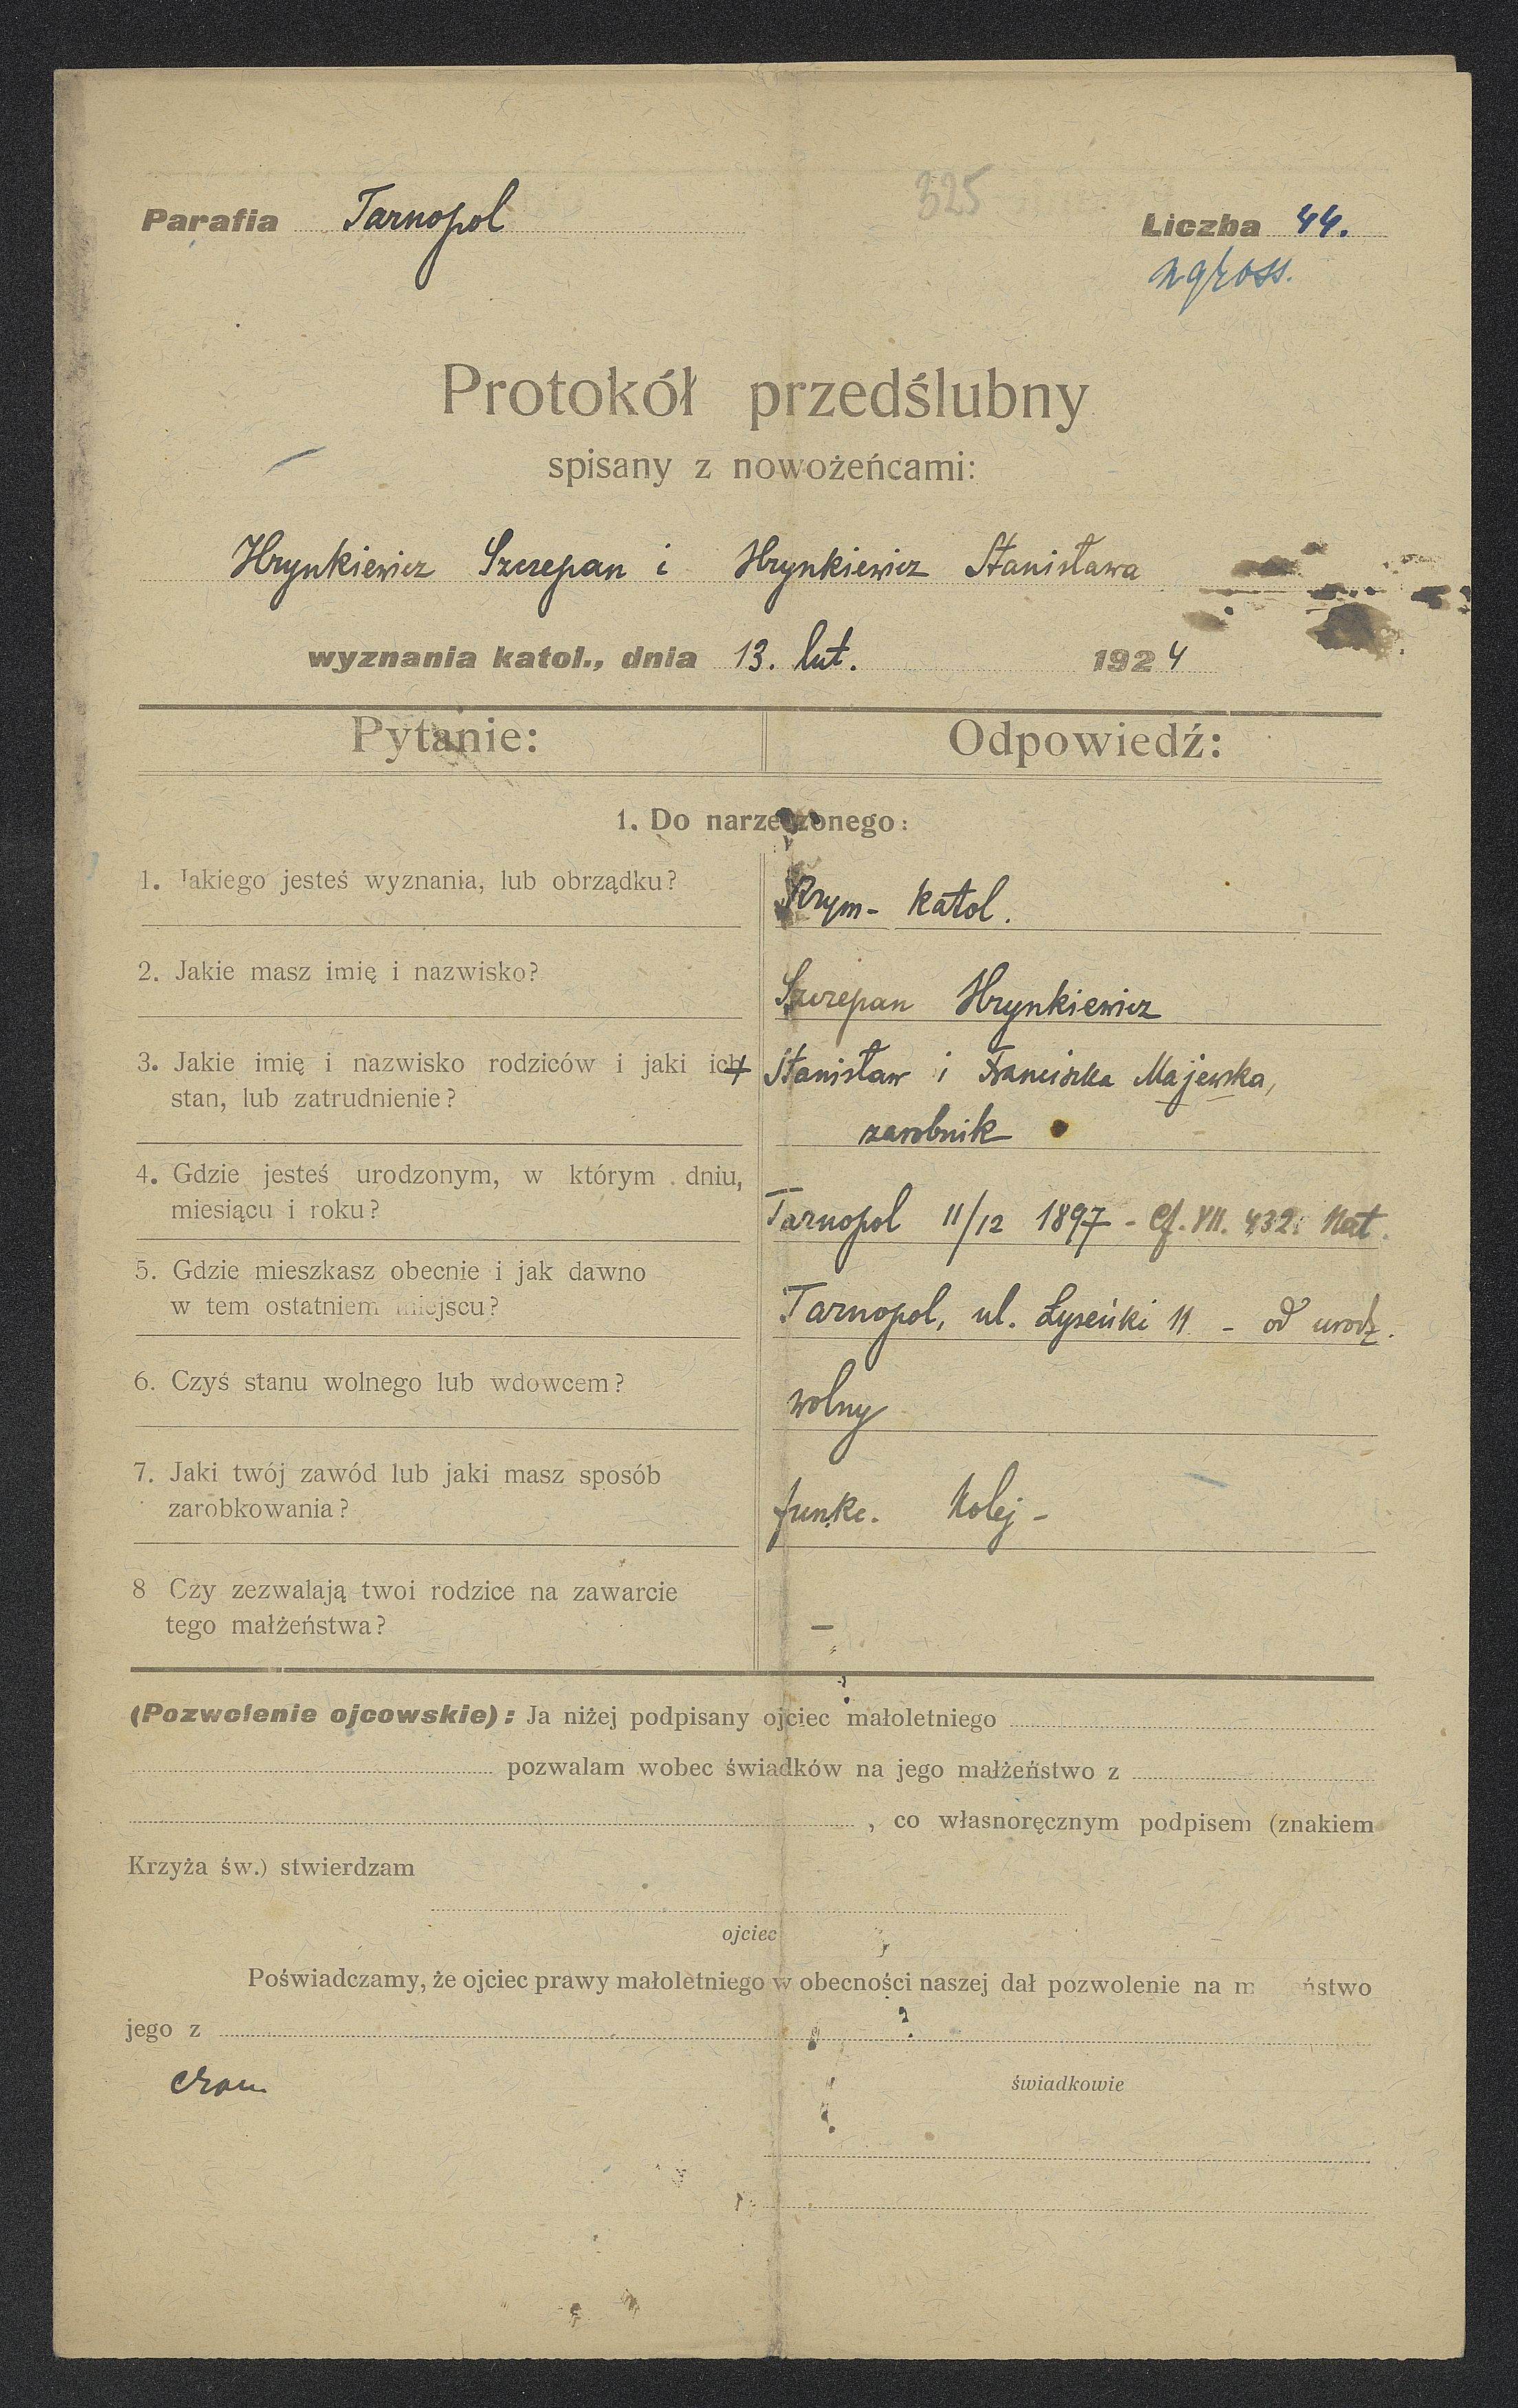 325
Parafia Tarnopol
Liczba 44.
Protokół przedślubny
spisany z nowożeńcami:
Hrynkiewicz Szczepan i Hrynkiewicz Stanisława
wyznania katol., dnia 13. lut. 1924
Pytanie: Odpowiedź:
1. Do narzeczonego:
1. Jakiego jesteś wyznania, lub obrządku?
Rzym- katol.
2. Jakie masz imię i nazwisko?
Szczepan Hrynkiewicz
3. Jakie imię i nazwisko rodziców i jaki ich
stan, lub zatrudnienie?
+ Stanisław i Franciszka Majewska,
zarobnik
4. Gdzie jesteś urodzonym, w którym dniu,
miesiącu i roku?
Tarnopol 11/12 1897 - Cf. VII. 432. Nat.
5. Gdzie mieszkasz obecnie i jak dawno
w tem ostatniem miejscu?
Tarnopol, ul. Łyseńki 11 - od urodz.
6. Czyś stanu wolnego lub wdowcem?
wolny
7. Jaki twój zawód lub jaki masz sposób
zarobkowania?
funkc. kolej -
8 Czy zezwalają twoi rodzice na zawarcie
tego małżeństwa?
—
(Pozwolenie ojcowskie): Ja niżej podpisany ojciec małoletniego
pozwalam wobec świadków na jego małżeństwo z
, co własnoręcznym podpisem (znakiem
Krzyża św.) stwierdzam
ojciec
Poświadczamy, że ojciec prawy małoletniego w obecności naszej dał pozwolenie na m eństwo
jego z
świadkowie